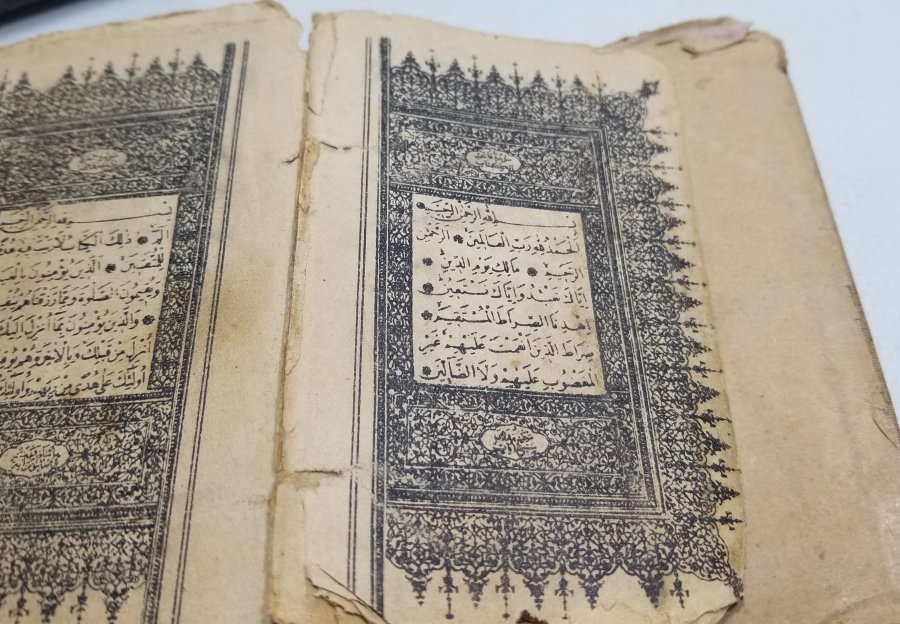 بِسْمِ اللهِ الرَّحْمٰنِ الرَّحِيمِ
اَلْحَمْدُ لِلّٰهِ رَبِّ الْعَالَمِينَ الرَّحْمٰنِ
الرَّحِيمِ مَالِكِ يَوْمِ الدِّينِ
اِيَّاكَ نَعْبُدُ وَاِيَّاكَ نَسْتَعِينُ
اِهْدِنَا الصِّرَاطَ الْمُسْتَقِيمَ
صِرَاطَ الَّذِينَ اَنْعَمْتَ عَلَيْهِمْ غَيْرِ
الْمَغْضُوبِ عَلَيْهِمْ وَلَا الضَّالِّينَ
بِسْمِ اللهِ الرَّحْمٰنِ الرَّحِيمِ
الٓمٓ ذٰلِكَ الْكِتَابُ لَا رَيْبَ فِيهِ هُدًى
لِلْمُتَّقِينَ الَّذِينَ يُؤْمِنُونَ
وَيُقِيمُونَ الصَّلٰوةَ وَمِمَّا رَزَقْنَاهُمْ
وَالَّذِينَ يُؤْمِنُونَ بِمَا اُنْزِلَ
نْزِلَ مِنْ قَبْلِكَ وَبِالْاٰخِرَةِ هُمْ
اُولٰئِكَ عَلٰى هُدًى مِنْ رَبِّهِمْ وَاُولٰئِكَ